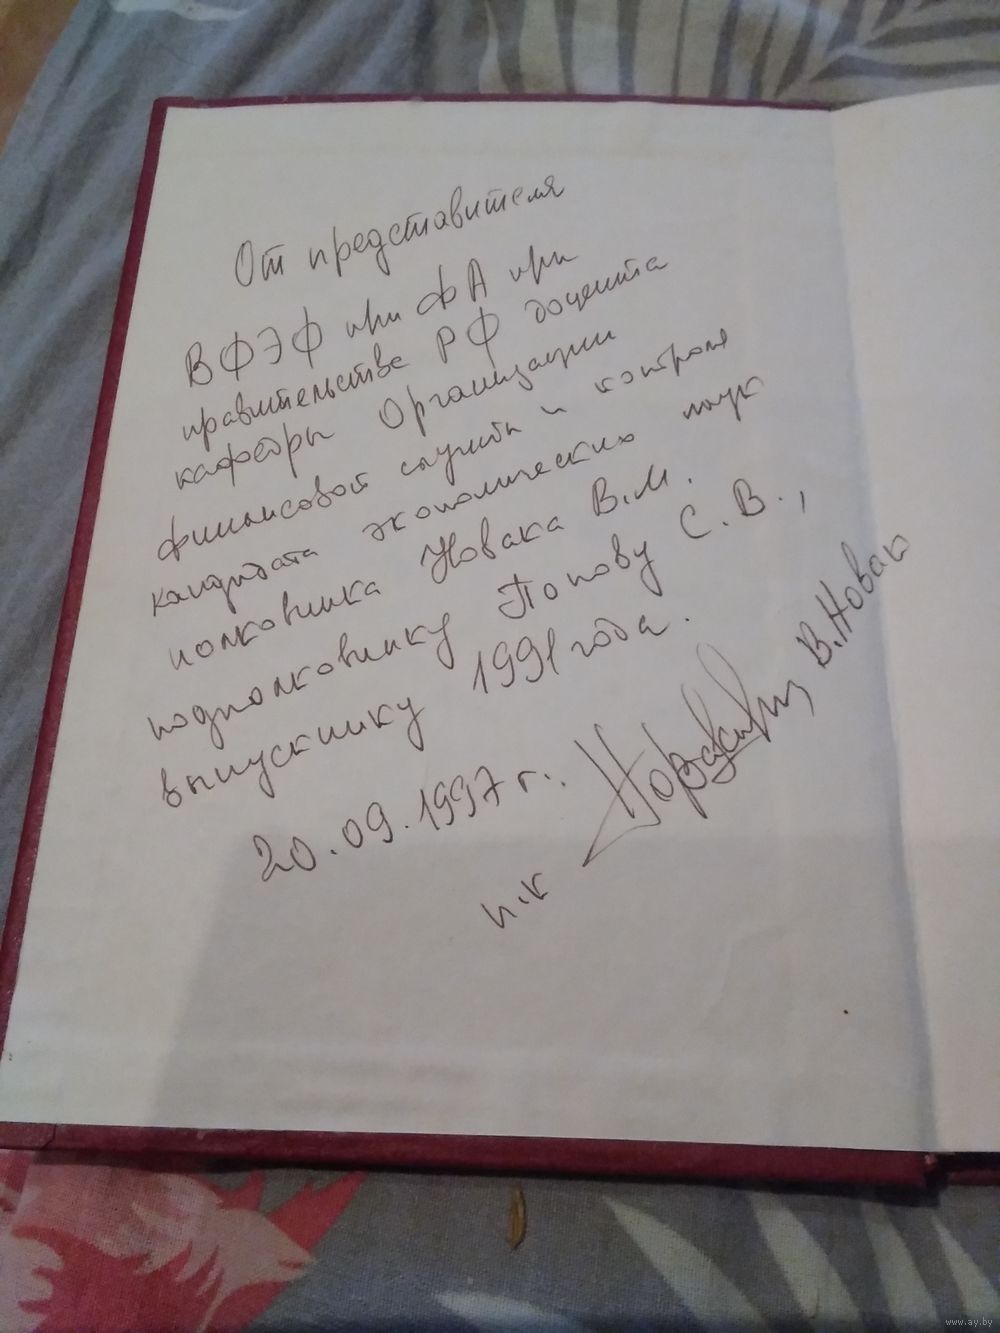 От представителя
ВФЭФ при ФА при
правительстве РФ доцента
кафедры Организации
финансовой службы и контроля
кандидата экономических наук
полковника Новака В.М.
подполковнику Попову С.В.,
выпускнику 1991 года.
20.09.1997 г.
п-к В.Новак
www.ay.by